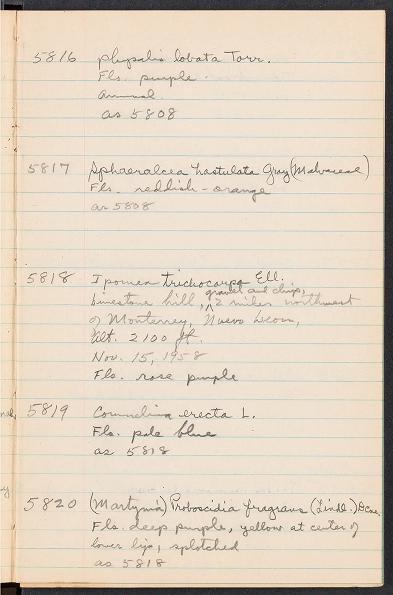 5816 Physalis lobata Torr.
Fls. purple.
Annual.
as 5808
5817 Sphaeralcea hastulata Gray (Malvaceae)
Fls. reddish-orange
as 5808
5818 Ipomea trichocarpa Ell.
gravel and chips,
Limestone hill, 2 miles northwest
of Monterrey, Nuevo Leon,
Alt. 2100 ft.
Nov. 15, 1958
Fls. rose purple
5819 Commelina erecta L.
Fls. pale blue
as 5818
5820 (Martynia) Proboscidia fragrans (Lindl.) Dcne.
Fls. deep purple, yellow at center of
lower lip, splotched
as 5818